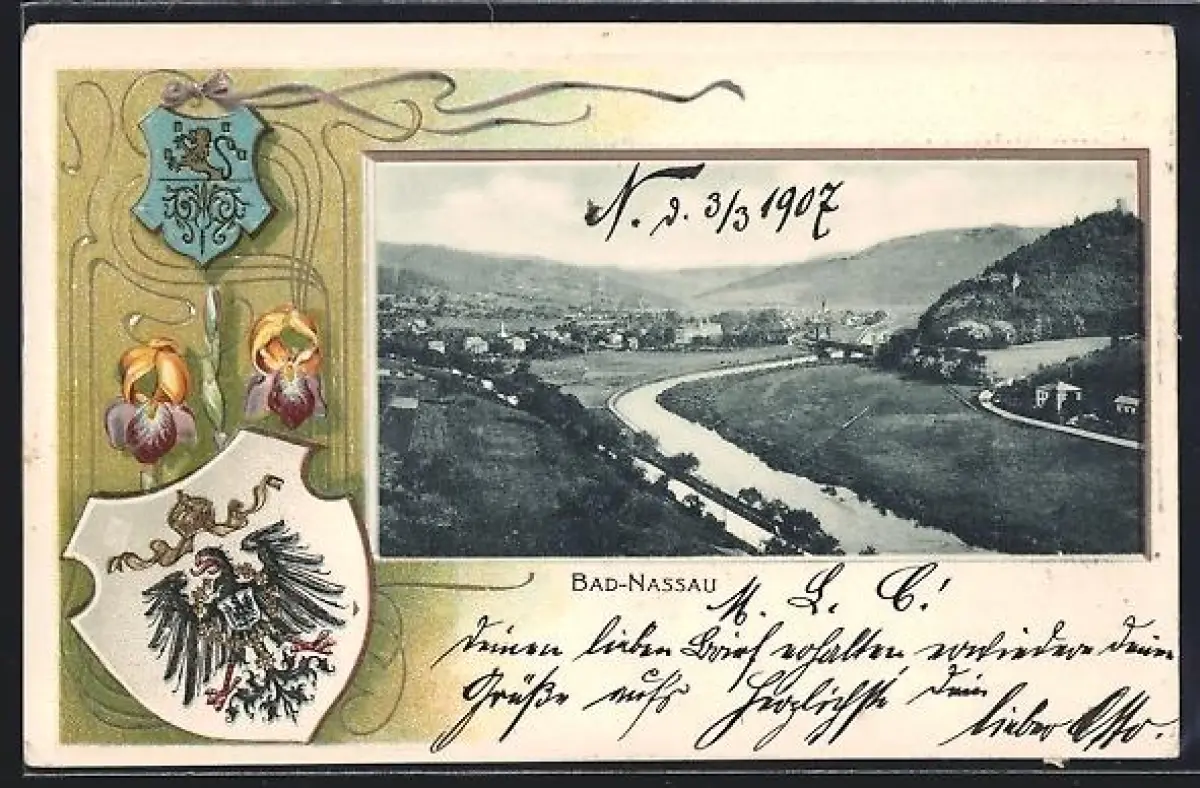 N. d. 3/3 1907
BAD-NASSAU
M. L. C.!
Deinen lieben Brief erhalten, erwiedere deine
Grüße aufs Herzlichste Dein
lieber Otto.